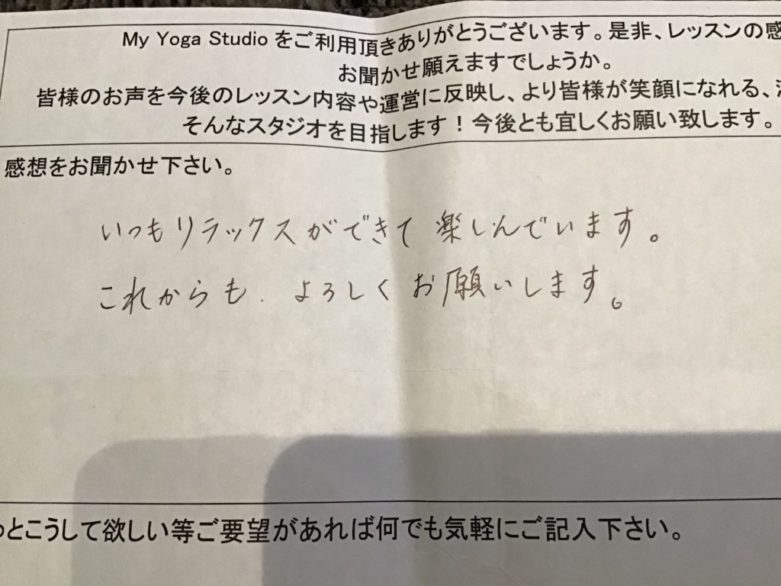 My Yoga Studio をご利用頂きありがとうございます。是非、レッスンの感
お聞かせ願えますでしょうか。
皆様のお声を今後のレッスン内容や運営に反映し、より皆様が笑顔になれる、
そんなスタジオを目指します！今後とも宜しくお願い致します。
感想をお聞かせ下さい。
いつもリラックスができて楽しんでいます。
これからも、よろしくお願いします。
っとこうして欲しい等ご要望があれば何でも気軽にご記入下さい。